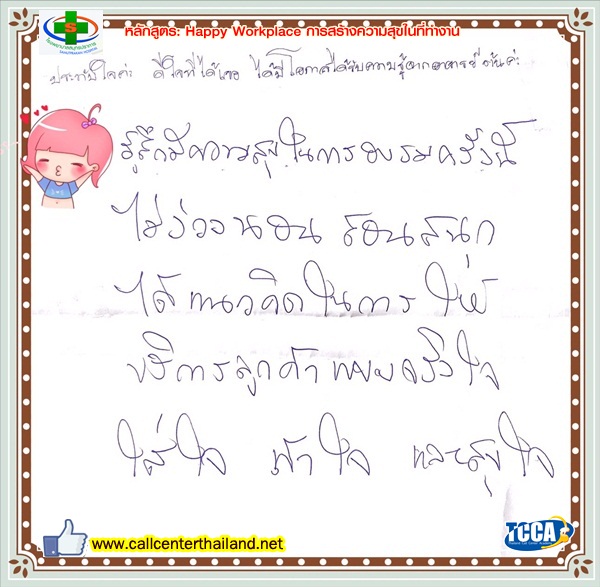 หลักสูตร: Happy Workplace การสร้างความสุขในที่ทำงาน
ประทับใจค่ะ ดีใจที่ได้เจอ ได้มีโอกาสได้รับความรู้จากอาจารย์
รู้สึกมีความสุขในการอบรมครั้งนี้
ไม่ง่วงนอน สอนสนุก
ได้แนวคิดในการให้
บริการลูกค้าแบบจริงใจ
ใส่ใจ เข้าใจ และสุขใจ
www.callcenterthailand.net
TCCA